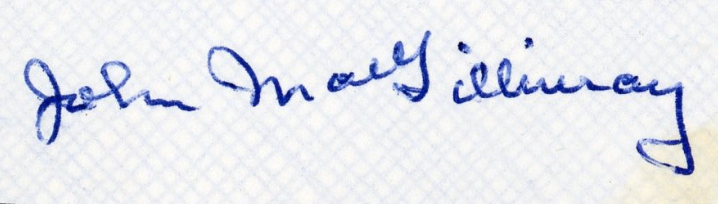 John MacGillivray